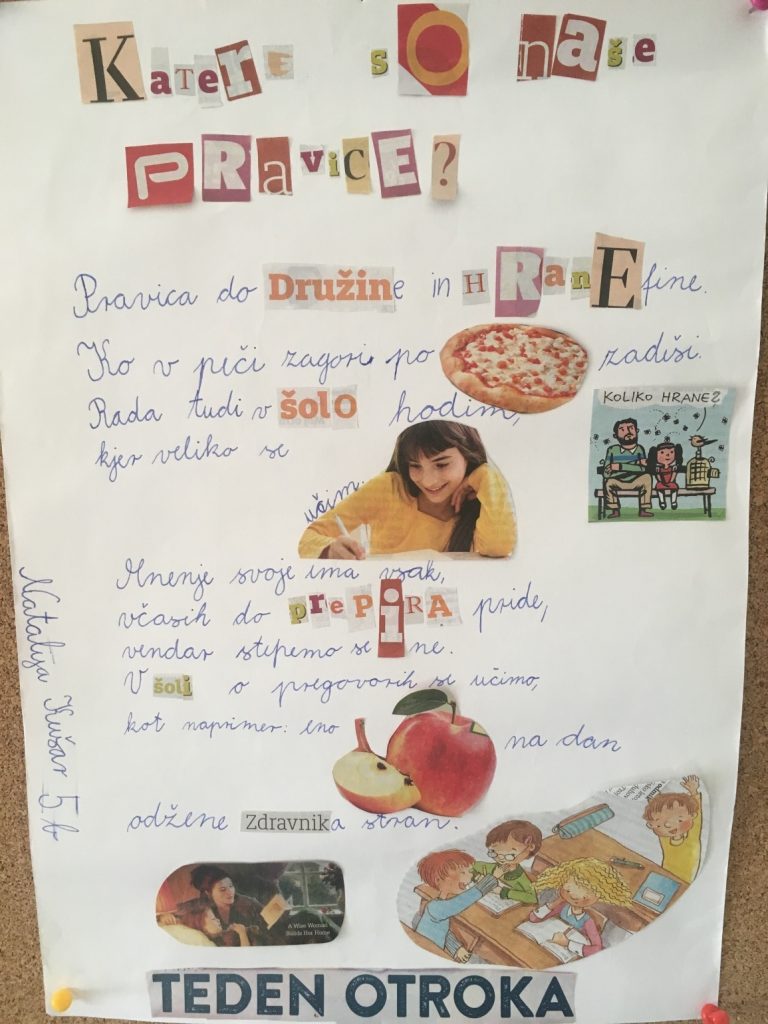 Katere so naše
PRavicE?
Pravica do Družine in HRanE fine.
Ko v peči zagori, po zadiši.
Rada tudi v šolo hodim,
KOLIKO HRANE?
kjer veliko se
učim.
Mnenje svoje ima vsak,
včasih do prePiRA pride,
vendar stepemo se ne.
V šoli o pregovorih se učimo,
kot naprimer: eno na dan
odžene Zdravnika stran.
Natalija Kušar 5.b
A Wise Woman
Builds Her Home
TEDEN OTROKA